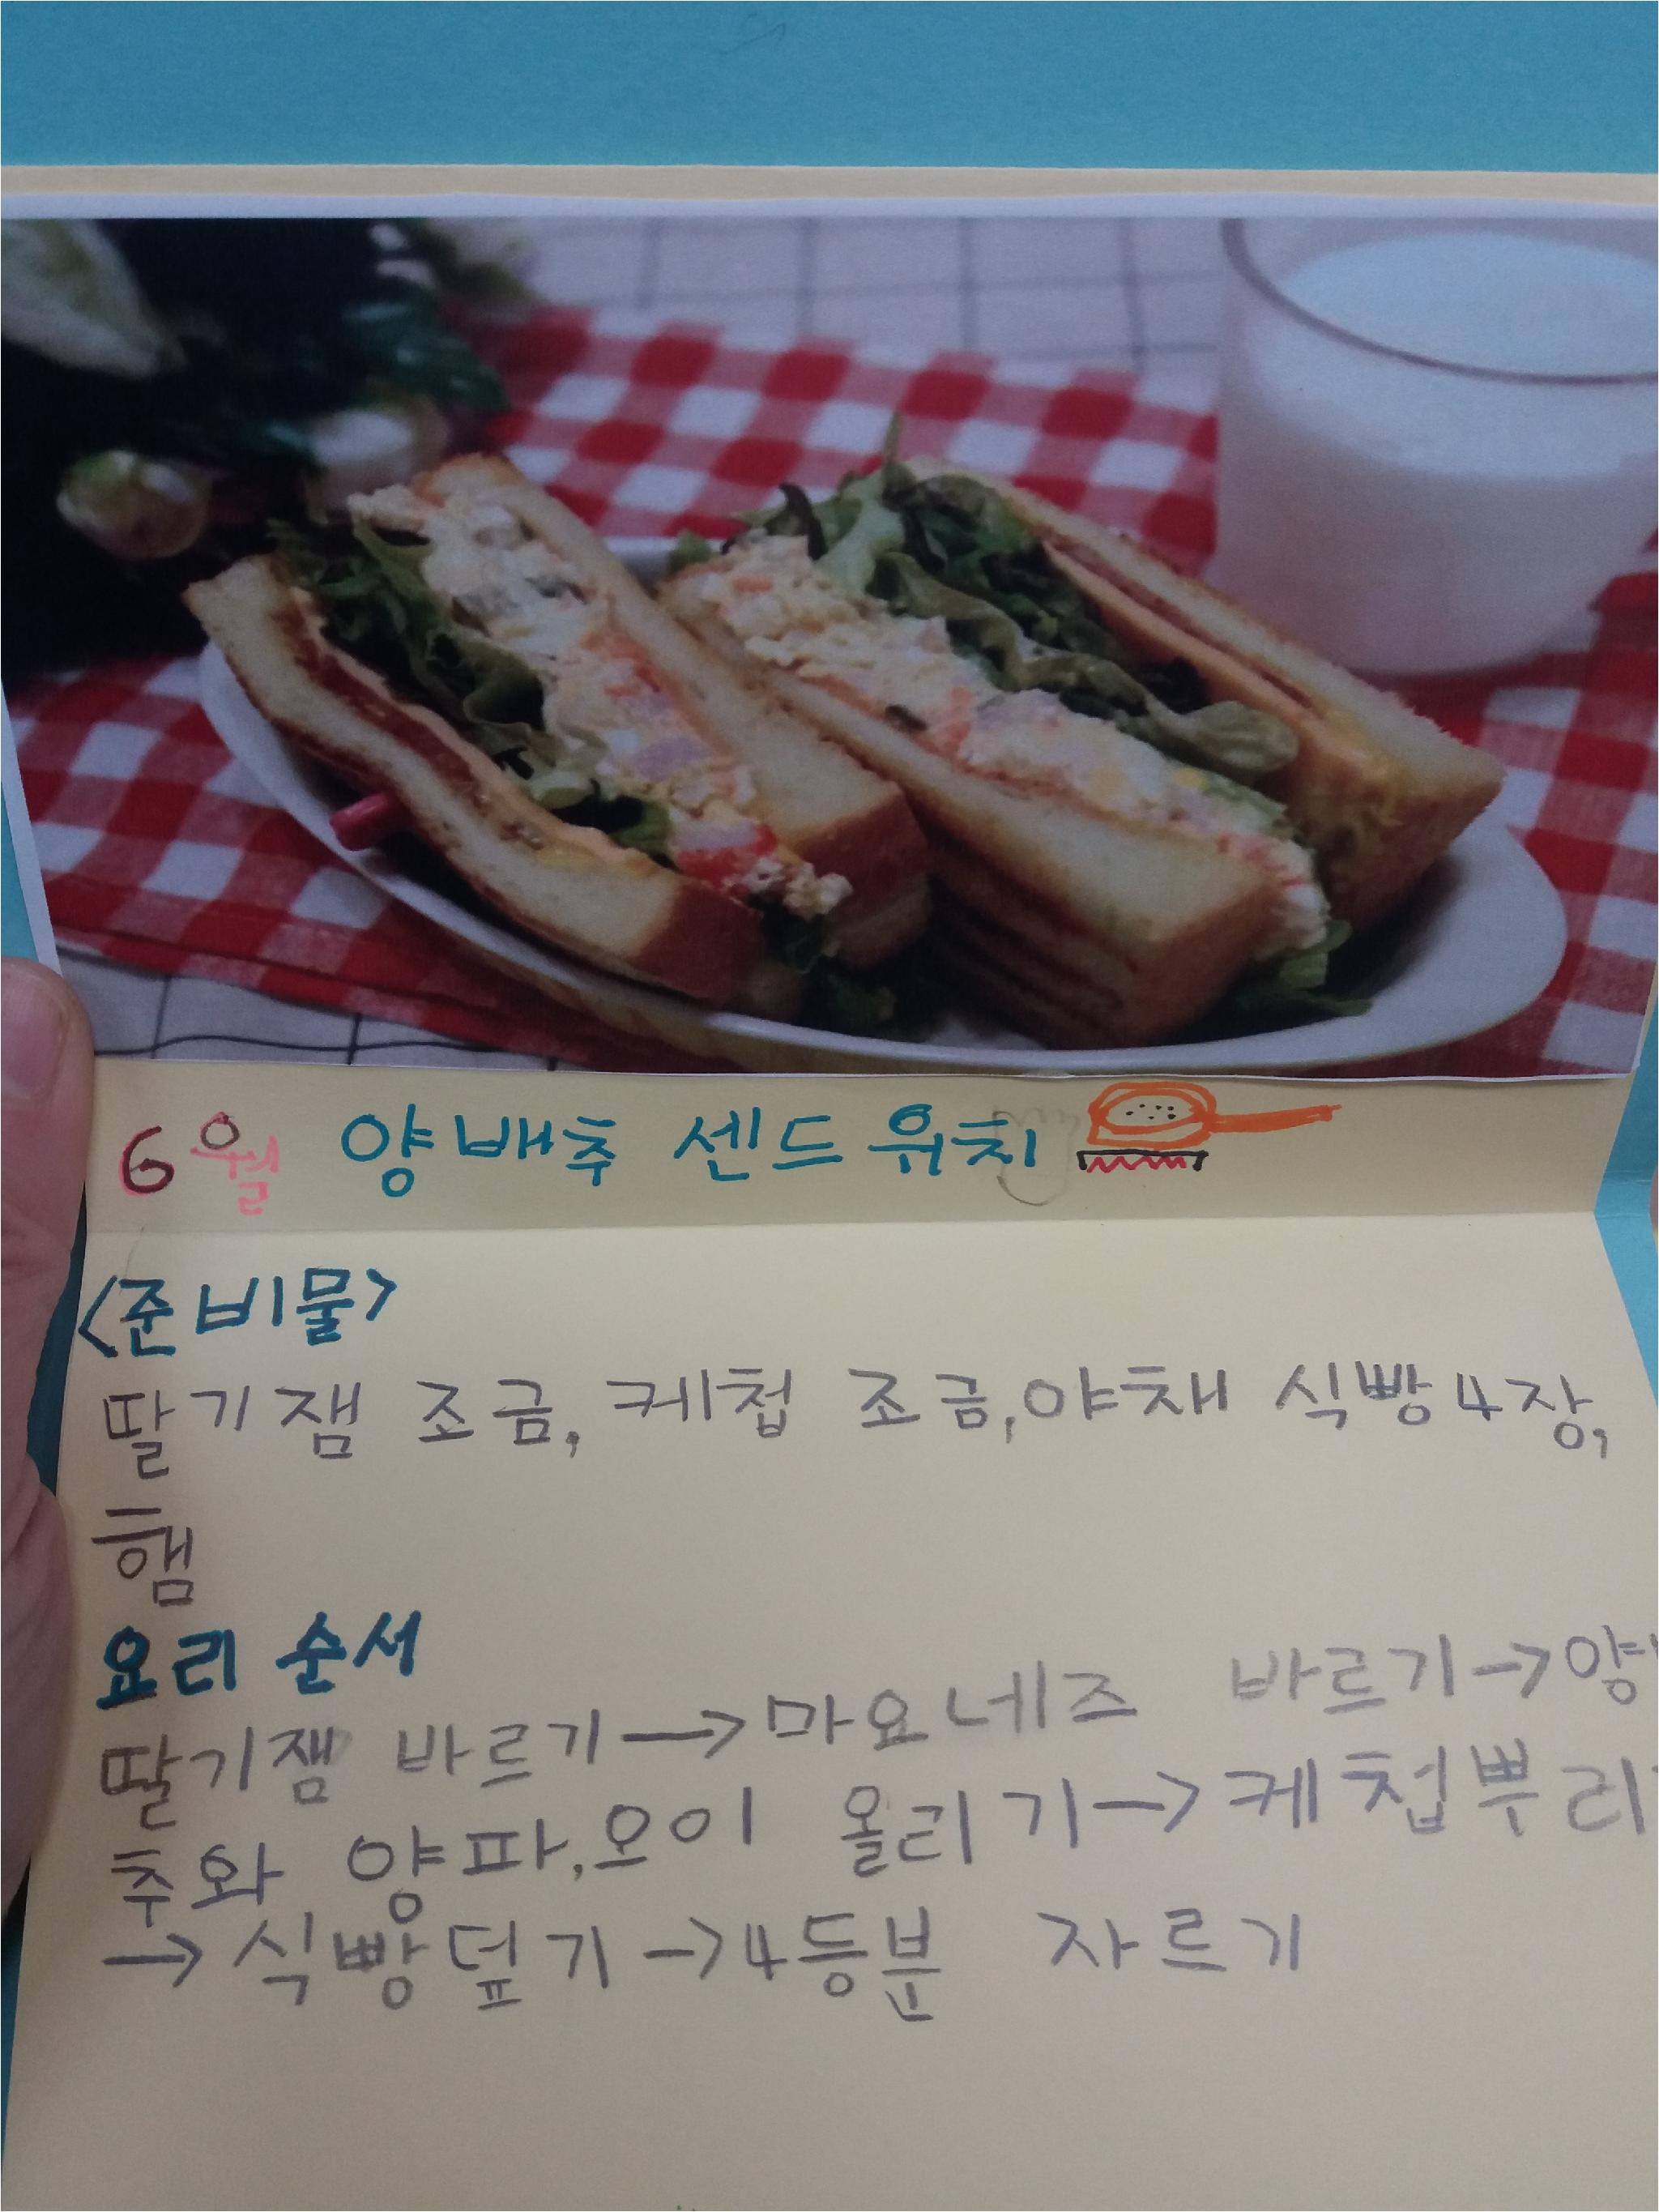 6월 양배추 센드위치
<준비물>
딸기잼 조금, 케첩 조금, 야채 식빵 4장,
햄
요리 순서
딸기잼 바르기 → 마요네즈 바르기 → 양
추와 양파, 오이 올리기 → 케첩뿌리
→ 식빵덮기 → 4등분 자르기